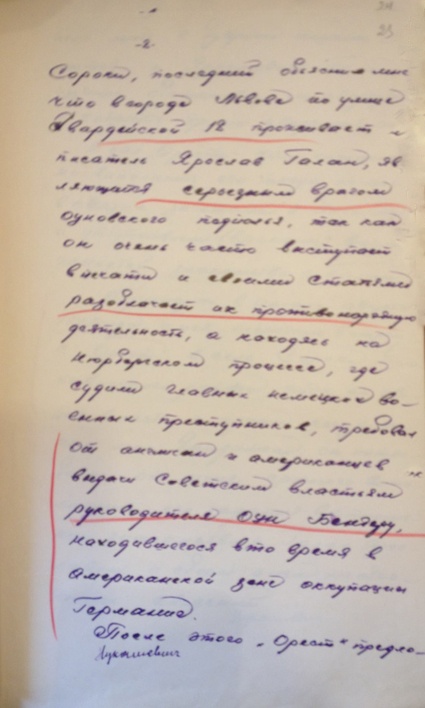 -2
Сороки, последний объяснил мне
что в городе Львове по улице
Гвардейской 12 проживает
писатель Ярослав Галан, яв
ляющийся серьезным врагом
оуновского подполья, так как
он очень часто выступает
в печати и своими статьями
разоблачает их противонародную
деятельность, а находясь на
Нюрбергском процессе, где
судили главных немецких во-
енных преступников, требовал
от англичан и американцев
выдачи Советским властям
руководителя ОУН Бандеру,
находившегося в то время в
Американской зоне оккупации
Германии.
После этого „Орест“ предло-
Лукашевич